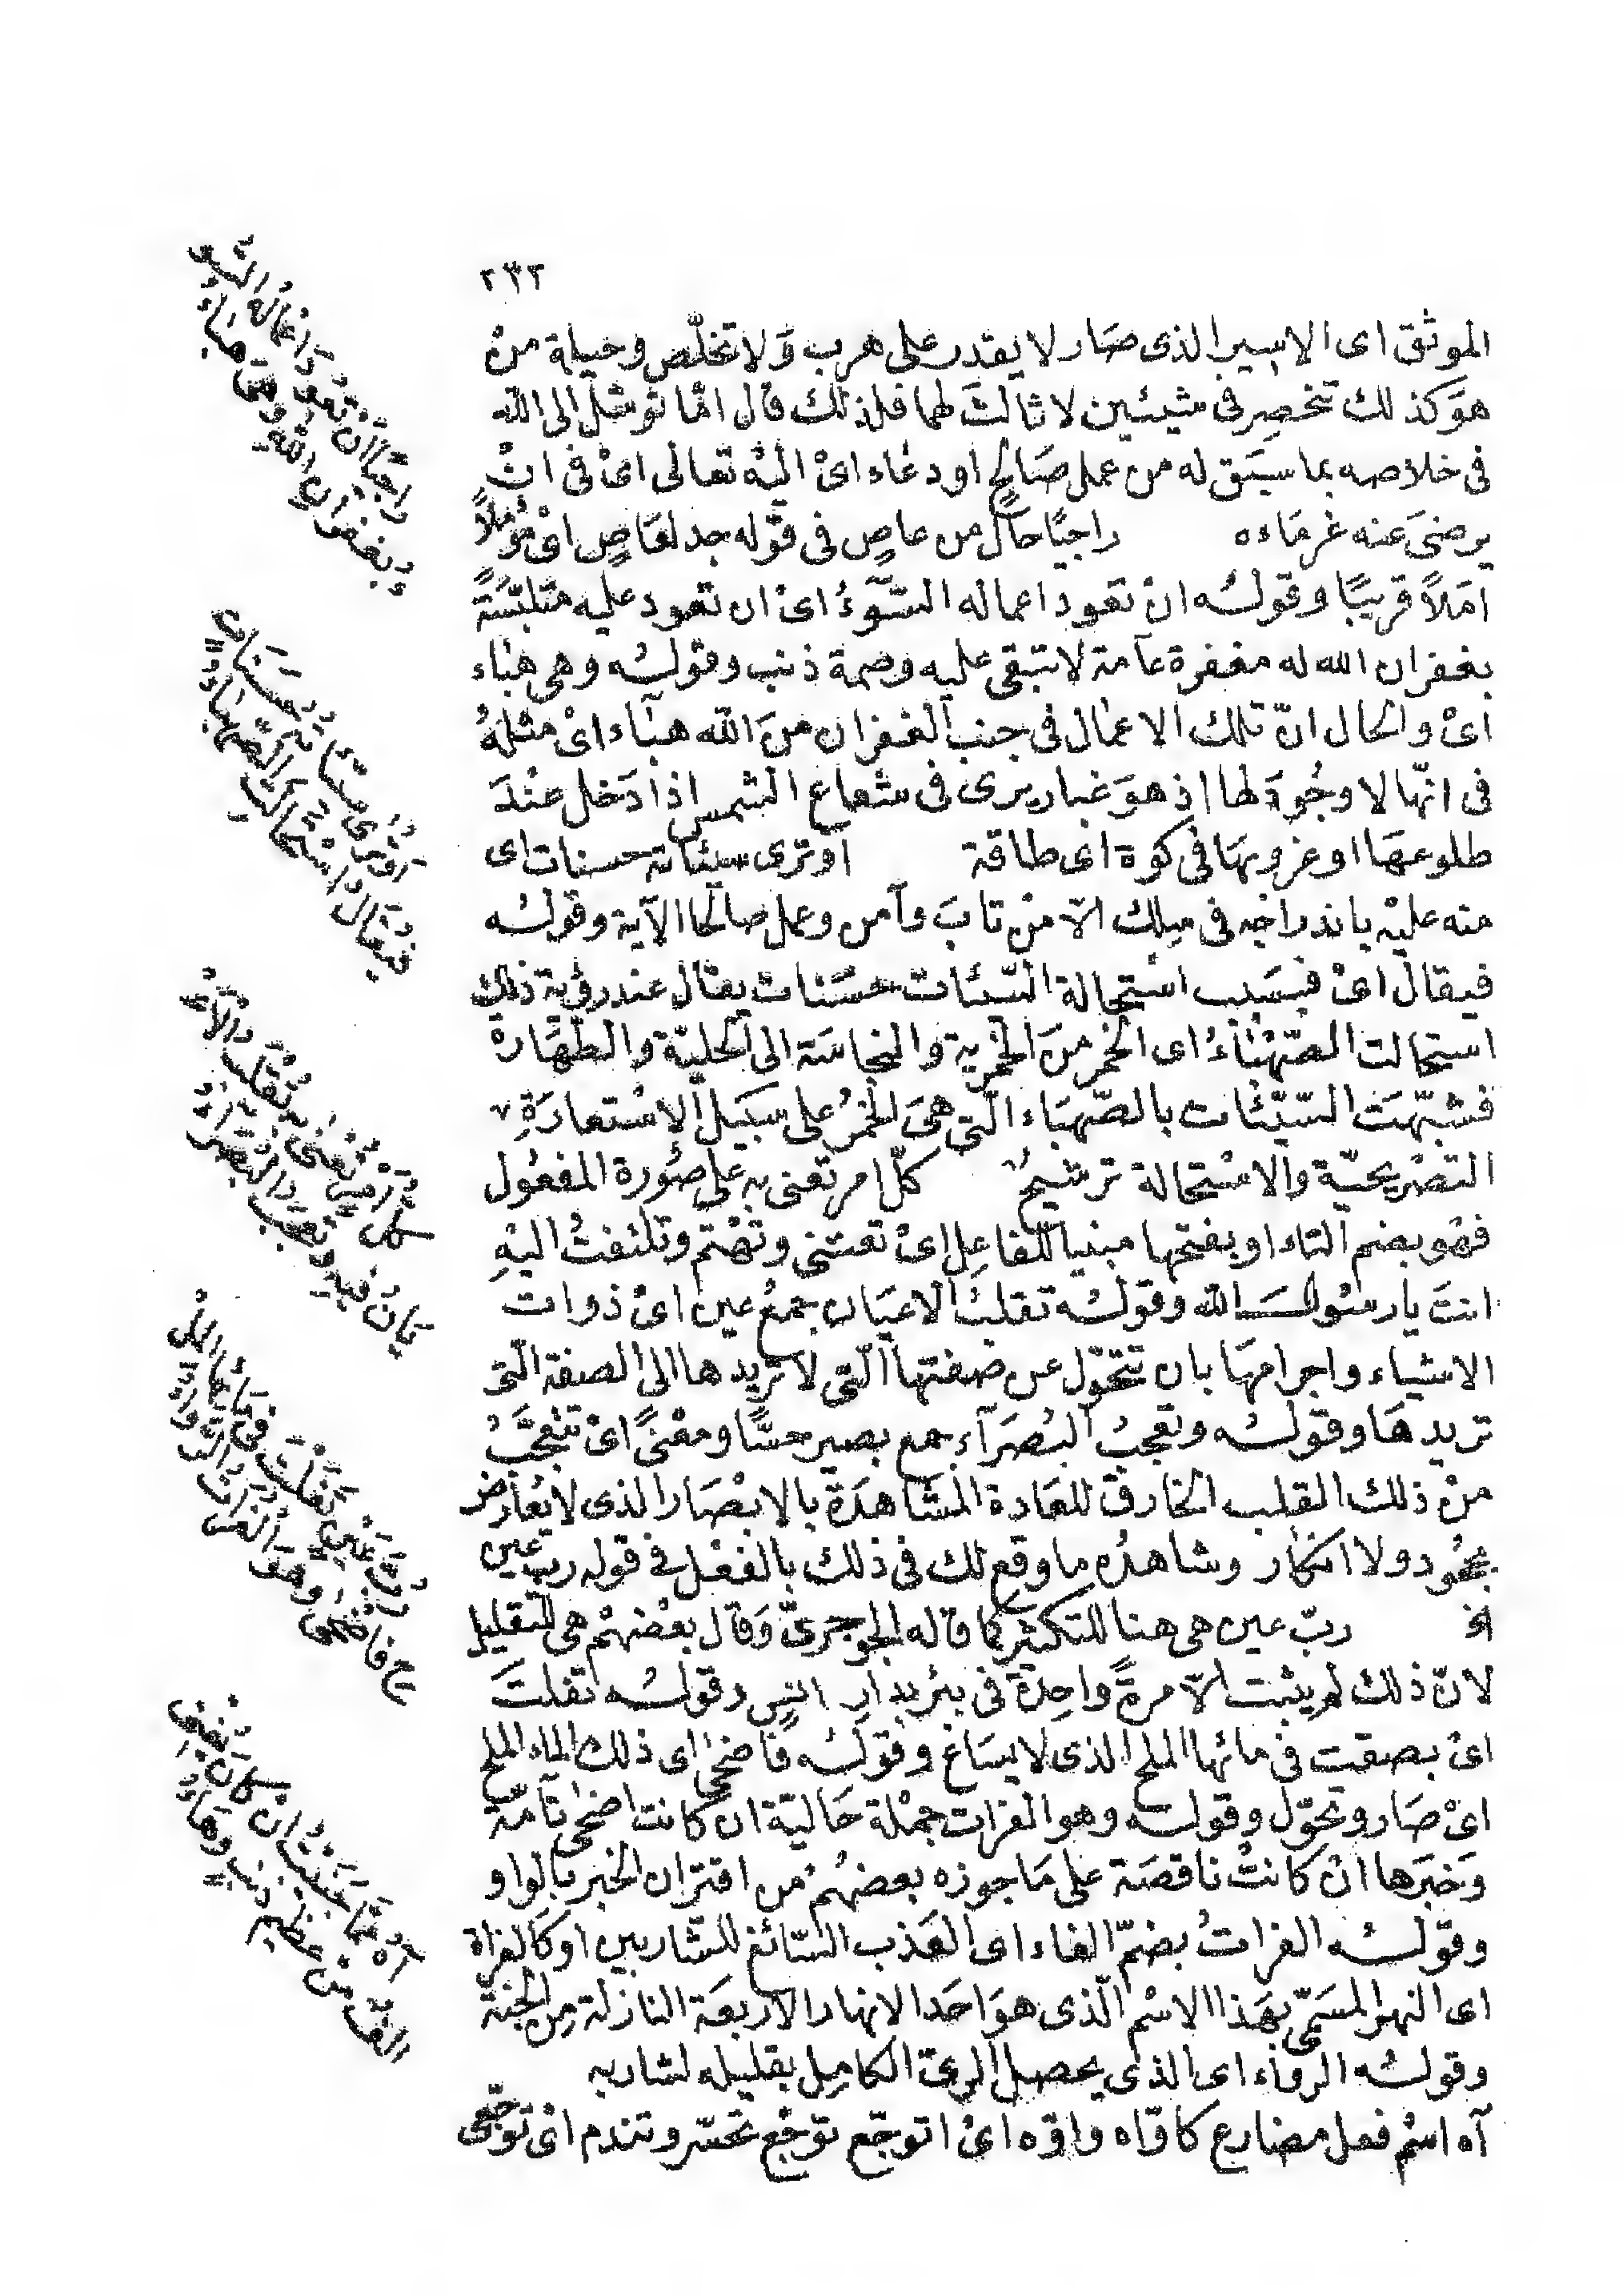 ٢٣٢
الموثق اى الاسير الذى صَار لا يقدر على هرب وَلا تخلّص وحيلة منْ
هوَ كذلك تنحصر فى شيئين لا ثالثَ لهما فلذلك قال امّا توسّل الى الله
فى خلاصه بما سبَق له من عمل صَالحٍ او دعَاء اىْ اليْه تعالى اىْ فى انْ
يرضىَ عنه غرمَاءه راجيًا حَال من عاصٍ فى قوْله جد لعَاصٍ اىْ مؤمّلاً
امَلاً قريبًا وقولهُ انْ تعود اعماله السّوءُ اىْ ان تعود عليه متلبّسَةً
بغفران الله له مغفرة عآمة لا تبقى عليه وصمة ذنب وقولهُ وهى هبَاء
اىْ والحال انّ تلك الاعمال فى جنب الغفران منَ الله هبَآء اىْ مثلهُ
فى انّها لا وجُودَ لها اذ هوَ غبار يرى فى شعاع الشمس اذا دَخل عنْدَ
طلوعهَا او غروبهَا فى كوة اى طاقة او ترى سيئاته حسنات اى
منه عليْه باندراجه فى سلك الاّ منْ تابَ وآمن وعمل صالحا الآية وقولهُ
فيقال اىْ فبسَبب استحالة السّيئات حسَنات يقال عند رؤية ذلك
استحالت الصّهْبَاءُ اى الخمر منَ الخمرية والنجاسَة الى الحليّة والطهَارة
فشبّهَت السّيّئات بالصّهبَاء الّتى هىَ الخمرُ على سَبَيل الاسْتعارَةِ
التصْريحيّة والاستحالة ترشيحٌ كلّ امر تعنى به على صُورة المفعُول
فهْو بضم التاء او بفتحها مبنيا للفاعِل اىْ تعتنى وتهْتم وتلتفتُ اليْهِ
انتَ يا رسُولَ الله وقولهُ تقلبُ الاعيَان جمعُ عين اىْ ذوات
الاشياء واجرامهَا بان تتحوّل عن صفتها الّتى لا تريدها الى الصفة الّتى
تريدهَا وقولهُ وتعجبُ البُصَرَآء جمع بصير حسًّا ومعْنًى اىْ تتعجّبُ
منْ ذلك القلب الخارق للعَادة المشَاهدَة بالابْصَار الذى لا يُعَارَض
بجحُود ولا انكار وشاهدُه ما وقع لك فى ذلك بالفعْل فى قوله ربّ عين
الخ ربّ عين هى هنا للتكثير كما قاله الجوجرىّ وَقال بعْضهُمْ هى للتقليل
لانّ ذلك لم يثبت الاّ مرةً واحِدةً فى بئر بدَارِ انسٍ وقولهُ تفلتَ
اىْ بصقت فى مائها الملح الذى لا يسَاغ وقولهُ فاضحى اى ذلك الماء الملح
اىْ صَار وتحوّل وقوله وهو الفرات جمْلة حَاليّة ان كانت اضحى تآمّة
وَخبَرها انْ كانتْ ناقصَة على مَا جوزه بعضهُمْ من اقتران الخبر بالواو
وقولهُ الفراتُ بضمّ الفاء اى العَذب السّائغ للشّاربين او كَالفراة
اى النهر المسَمّى بهَذا الاسْم الّذى هوَ احَد الانهار الاربعَة النازلة مِن الجنّة
وقولهُ الروَاء اى الذى يحصل الرىّ الكامِل بقليله لشاربه
آه اسْم فعل مضارع كاوّاه واوّه اىْ اتوجّع توجّع تحسّر وتندم اىْ توجّعى
راجيًا ان تعود اعماله السّو
ءُ بغفران الله وهى هبَاءُ
اوْ تُرى سيّئاته حسَنات
فيُقال استحالت الصّهبَاءُ
كلّ امر تعنى به تقلب الاعْ
يَانُ فيه وتعجَب البُصَرَاءُ
ربّ عين تفلتَ فى مائها المل
ح فاضحى وهو الفرات الرّواءُ
آه ممّا جنيْتُ ان كان يُغنى
الفٌ من عظيم ذنب وهَاءُ